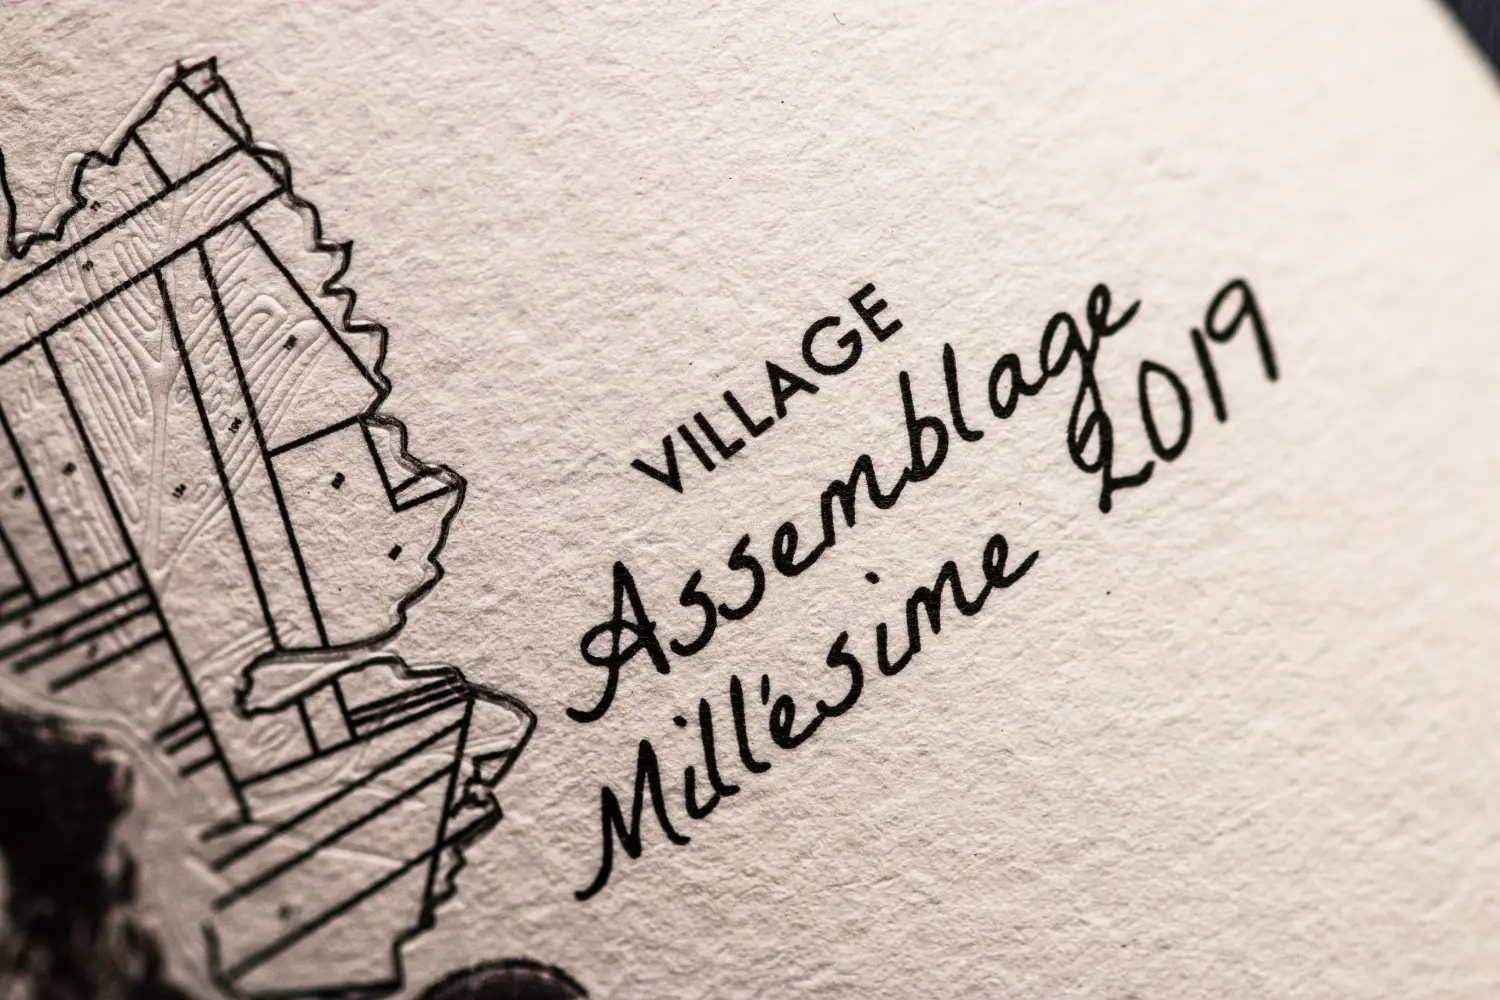 VILLAGE
Assemblage
Millésime 2019